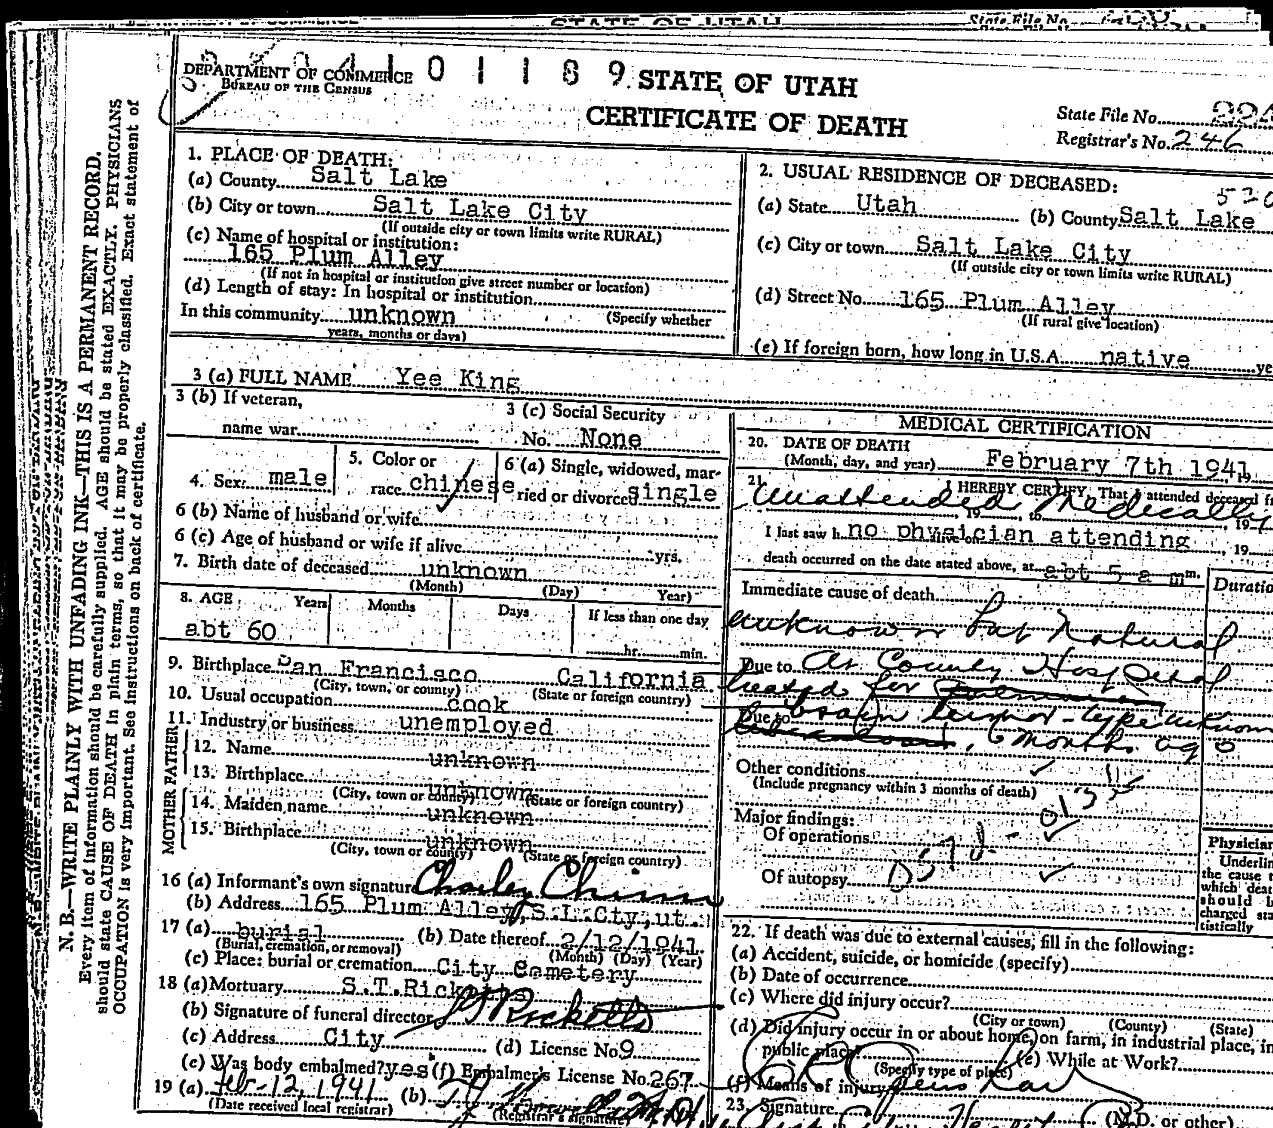 STATE OF UTAH
State File No.
DEPARTMENT OF COMMERCE
BUREAU OF THE CENSUS
0 1 1 8 9
STATE OF UTAH
CERTIFICATE OF DEATH
State File No.
Registrar's No. 246
N. B.—WRITE PLAINLY WITH UNFADING INK—THIS IS A PERMANENT RECORD.
Every item of information should be carefully supplied. AGE should be stated EXACTLY. PHYSICIANS
should state CAUSE OF DEATH in plain terms, so that it may be properly classified. Exact statement of
OCCUPATION is very important. See instructions on back of certificate.
1. PLACE OF DEATH:
(a) County Salt Lake
(b) City or town Salt Lake City
(If outside city or town limits write RURAL)
(c) Name of hospital or institution:
165 Plum Alley
(If not in hospital or institution give street number or location)
(d) Length of stay: In hospital or institution
In this community unknown (Specify whether
years, months or days)
2. USUAL RESIDENCE OF DECEASED:
(a) State Utah (b) County Salt Lake
(c) City or town Salt Lake City
(If outside city or town limits write RURAL)
(d) Street No. 165 Plum Alley
(If rural give location)
(e) If foreign born, how long in U.S.A. native
3 (a) FULL NAME Yee King
3 (b) If veteran,
name war
3 (c) Social Security
No. None
4. Sex: male
5. Color or
race chinese
6 (a) Single, widowed, mar-
ried or divorced single
6 (b) Name of husband or wife
6 (c) Age of husband or wife if alive yrs.
7. Birth date of deceased unknown
(Month) (Day) Year)
8. AGE Years Months Days If less than one day
abt 60 hr. min.
9. Birthplace San Francisco California
(City, town, or county) (State or foreign country)
10. Usual occupation cook
11. Industry or business unemployed
FATHER
12. Name unknown
13. Birthplace unknown
(City, town or county) (State or foreign country)
MOTHER
14. Maiden name unknown
15. Birthplace unknown
(City, town or county) (State or foreign country)
16 (a) Informant's own signature Charley Chinn
(b) Address 165 Plum Alley, S.L.Cty, ut.
17 (a) burial (b) Date thereof 2/12/1941
(Burial, cremation, or removal) (Month) (Day) (Year)
(c) Place: burial or cremation City Cemetery
18 (a) Mortuary S.T.Ricketts
(b) Signature of funeral director S T Ricketts
(c) Address City (d) License No. 9
(e) Was body embalmed? yes (f) Embalmer's License No. 267
19 (a) Feb-12, 1941 (b)
(Date received local registrar) (Registrar's signature)
MEDICAL CERTIFICATION
20. DATE OF DEATH
(Month, day, and year) February 7th 1941, 19
21. I HEREBY CERTIFY, That I attended deceased
Unattended Medically
19 to 19
I last saw h no physician attending, 19
death occurred on the date stated above, at abt 5 a m m.
Immediate cause of death
Duratio
unknown but Natural
Due to At County Hospital
treated for
Due to brain tumor - type unknown
, 6 months ago
Other conditions
(Include pregnancy within 3 months of death)
Major findings:
Of operations
Of autopsy
D57d
Physician
Underlin
the cause t
which deat
should b
charged sta
tistically
22. If death was due to external causes, fill in the following:
(a) Accident, suicide, or homicide (specify)
(b) Date of occurrence
(c) Where did injury occur?
(City or town) (County) (State)
(d) Did injury occur in or about home, on farm, in industrial place, in
public place? (e) While at Work?
(Specify type of place)
(f) Means of injury
23. Signature (M.D. or other)